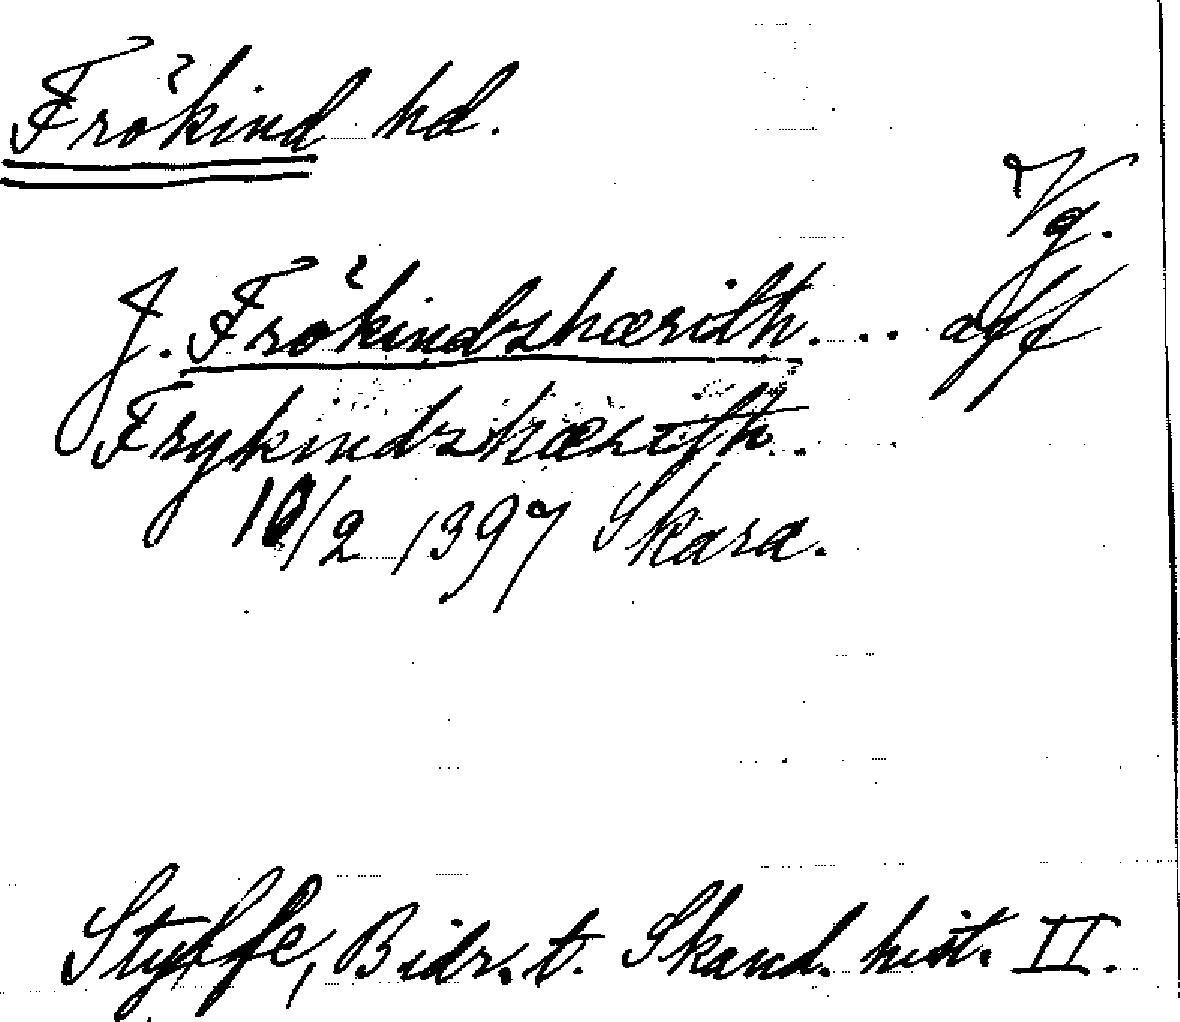 Frökind hd.
Vg.
J. Frökindzhæridh. ... aff
Frykindzhæridh..
10/2 1397 Skara.
Styffe, Bidr. t. Skand. hist. II.